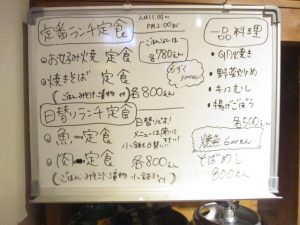 定番ランチ定食
AM11:00〜
PM2:00まで
・お好み焼 定食
ごはんなしは
各780えん
・焼きそば 定食
(ごはん・みそ汁・漬物 付)
各800えん
日替りランチ定食
・魚一定食
日替りです!
メニューは
・肉一定食
各800えん
(ごはん・みそ汁・漬物・小鉢 付)
一品料理
・野菜炒め
・キムむし
・揚げごぼう
各500えん
焼魚 600えん
そばめし
800えん